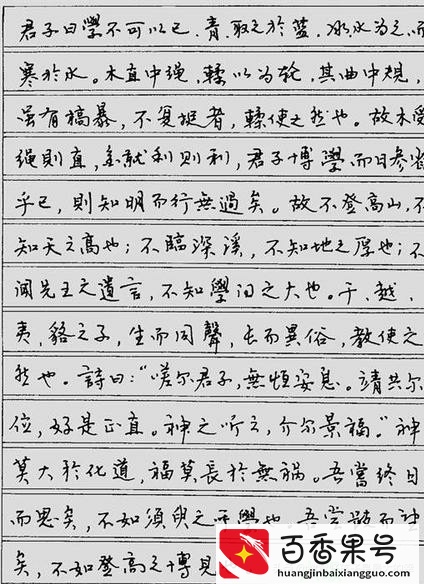 君子曰學不可以已。青,取之於蓝,冰水为之,而
寒於水。木直中绳,輮以为轮,其曲中規,
虽有槁暴,不复挺者,輮使之然也。故木受
绳則直,金就利則利,君子博學而日參省
乎己,則知明而行無過矣。故不登高山,不
知天之高也;不臨深溪,不知地之厚也;不
闻先王之遺言,不知學问之大也。干、越、
夷,貉之子,生而同聲,長而異俗,教使之
然也。詩曰:“嗟尔君子,無恒安息。靖共尔
位,好是正直。神之听之,介尔景福。”神
莫大於化道,福莫長於無祸。吾嘗终日
而思矣,不如須臾之所學也。吾嘗
矣,不如登高之博見
百香果号
huangjinbaixiangguo.com